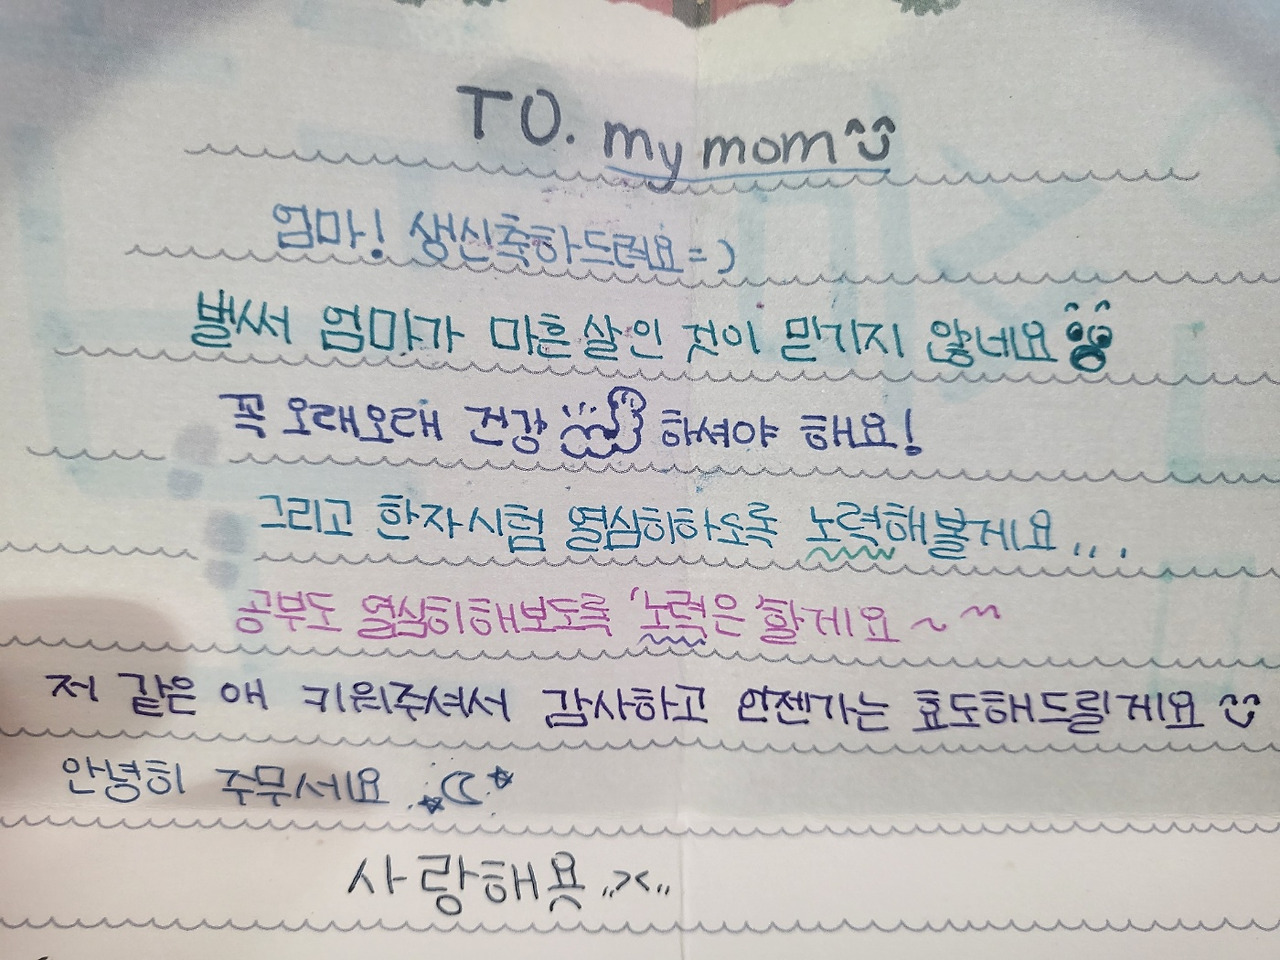 TO. my mom
엄마! 생신축하드려요=)
벌써 엄마가 마흔살인 것이 믿기지 않네요
꼭 오래오래 건강 하셔야 해요!
그리고 한자시험 열심히하도록 노력해볼게요...
공부도 열심히해보도록 '노력은'할게요~~
저 같은 애 키워주셔서 감사하고 언젠가는 효도해드릴게요
안녕히 주무세요
사랑해용 ,,><,,